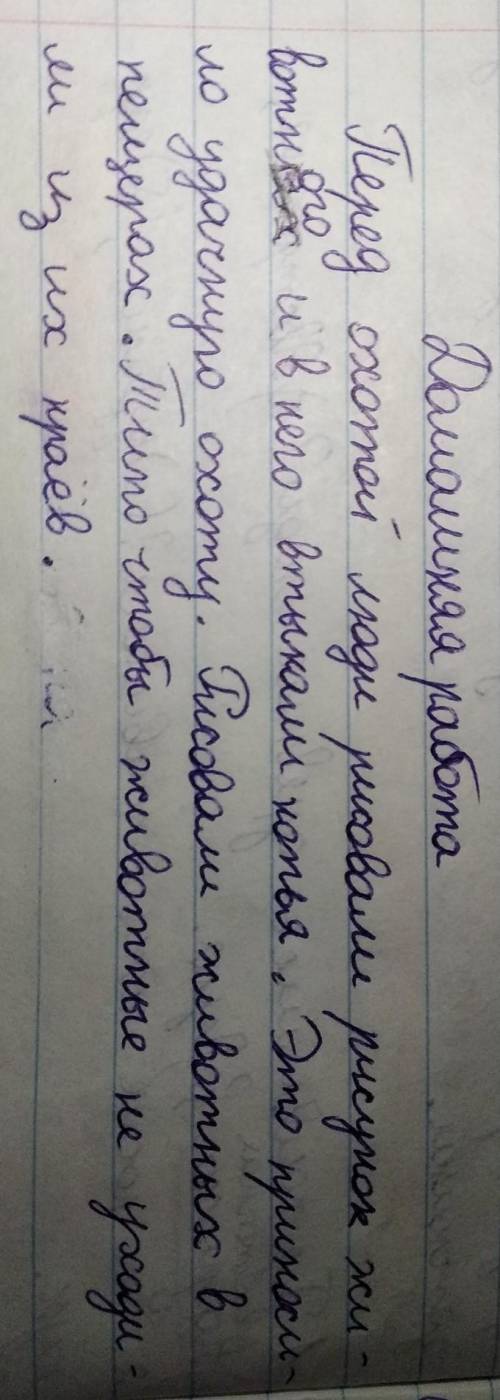 Домашняя работа
Перед охотой люди рисовали рисунок жи-
вотного и в него втыкали копья. Это приноси-
ло удачную охоту. Рисовали животных в
пещерах. Типо чтобы животные не уходи-
ли из их краёв.